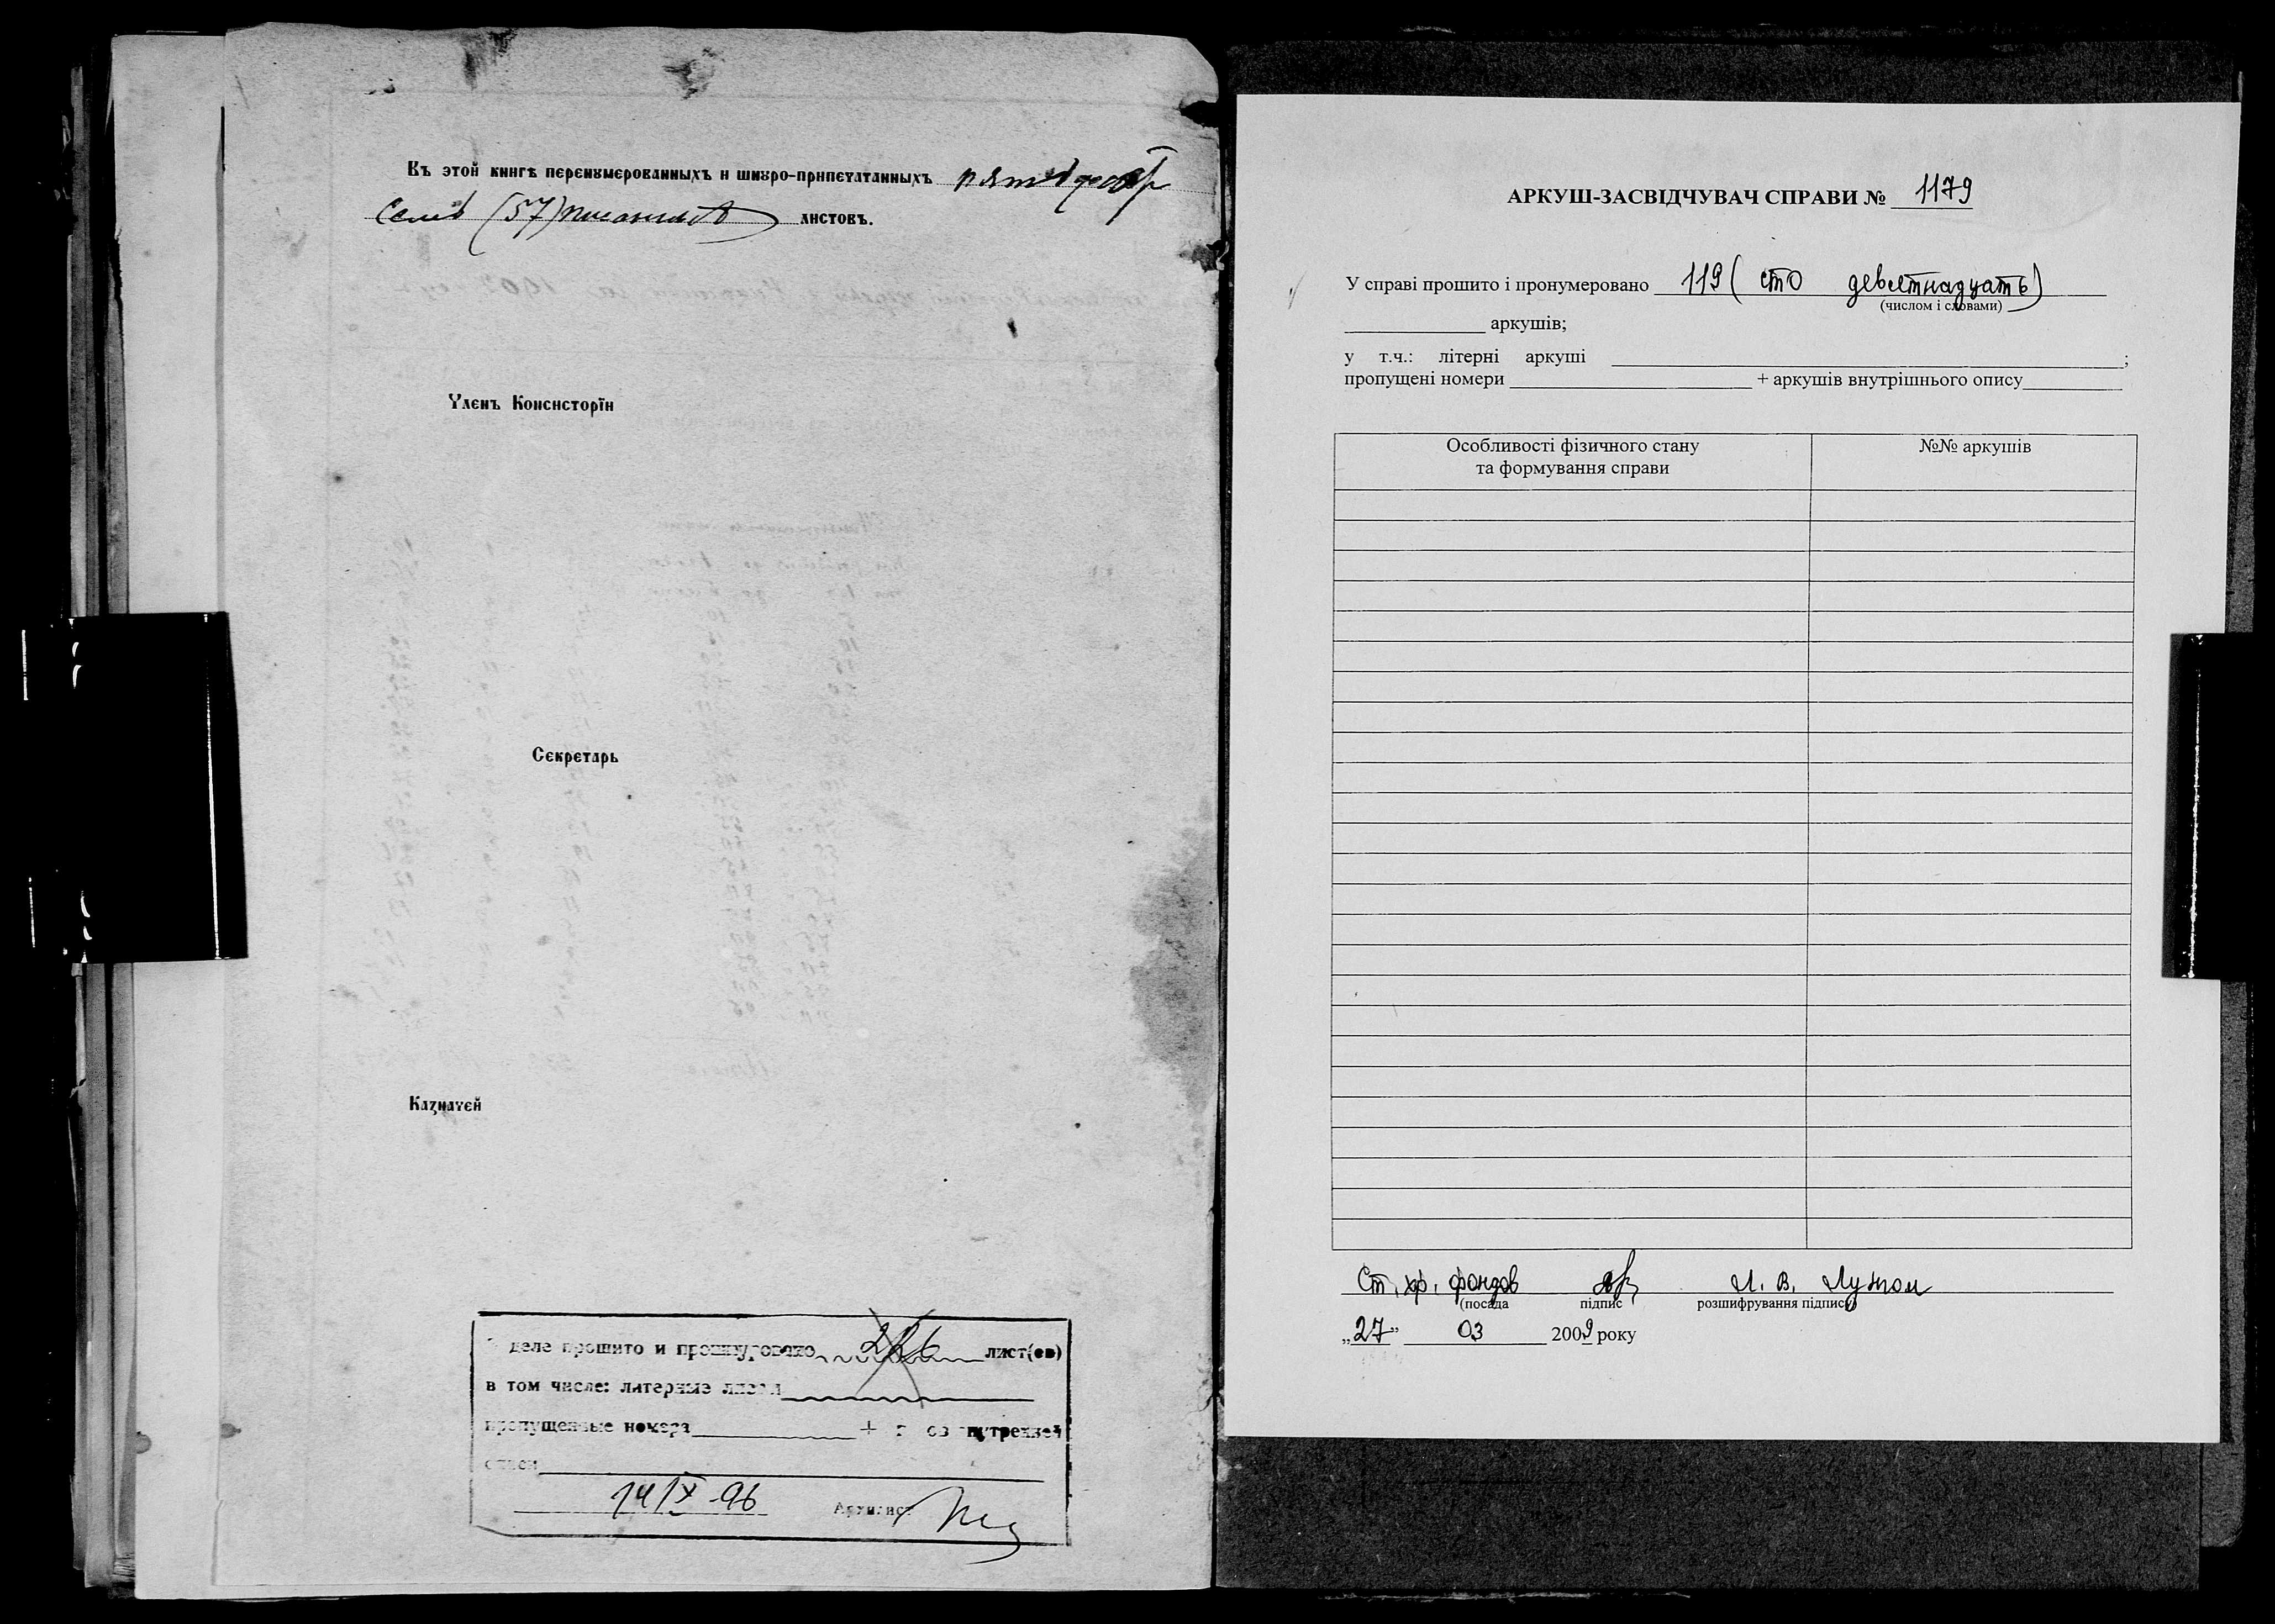 Въ этой книгѣ перенумерованныхъ и шнуро-припечатанныхъ пятьдесятъ
семь (57) листовъ.
Членъ Консисторїи
Секретарь
Казначей
деле прошито и пронумеровано 226 лист(ов)
в том числе: литерные листы
пропущенные номера + внутренней
описи
14/X-96 Архивист
АРКУШ-ЗАСВІДЧУВАЧ СПРАВИ № 1179
У справі прошито і пронумеровано 119 (сто девятнадцать)
(числом і словами)
аркушів;
у т.ч.: літерні аркуші ;
пропущені номери + аркушів внутрішнього опису
Особливості фізичного стану №№ аркушів
та формування справи
Ст. хр. фондов Л. В.
(посада підпис розшифрування підпису)
„27” 03 2009 року